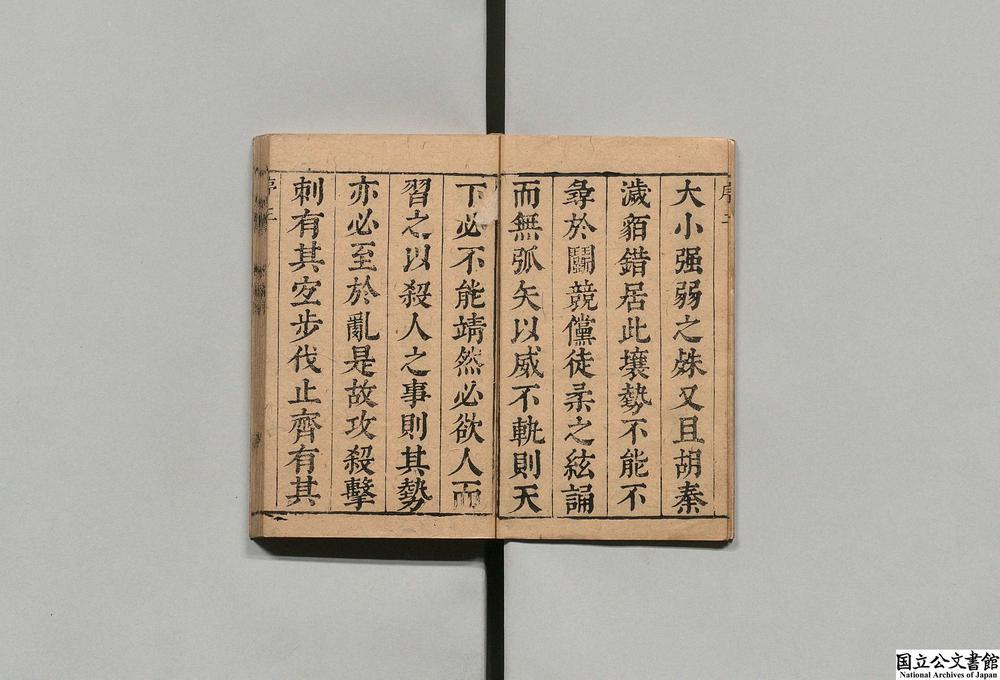 大小强弱之殊又且胡秦
濊貊錯居此壤勢不能不
尋於鬬競儻徒柔之絃誦
而無弧矢以威不軌則天
下必不能靖然必欲人而
習之以殺人之事則其勢
亦必至於亂是故攻殺擊
刺有其宜步伐止齊有其
国立公文書館
National Archives of Japan